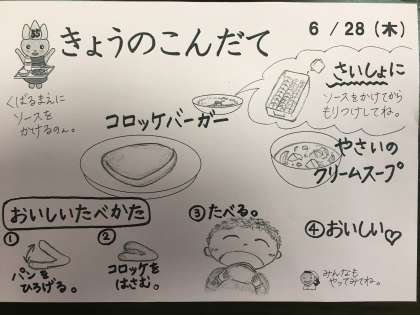 きょうのこんだて
6/28(木)
くばるまえに
ソースを
かけるのん。
さいしょに
ソースをかけてから
もりつけしてね。
コロッケバーガー
やさいの
クリームスープ
おいしいたべかた
①
パンを
ひろげる。
②
コロッケを
はさむ。
③たべる。
④おいしい♡
みんなも
やってみてね。